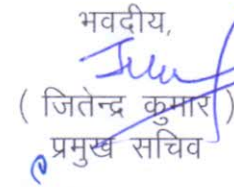 भवदीय,
( जितेन्द्र कुमार )
प्रमुख सचिव